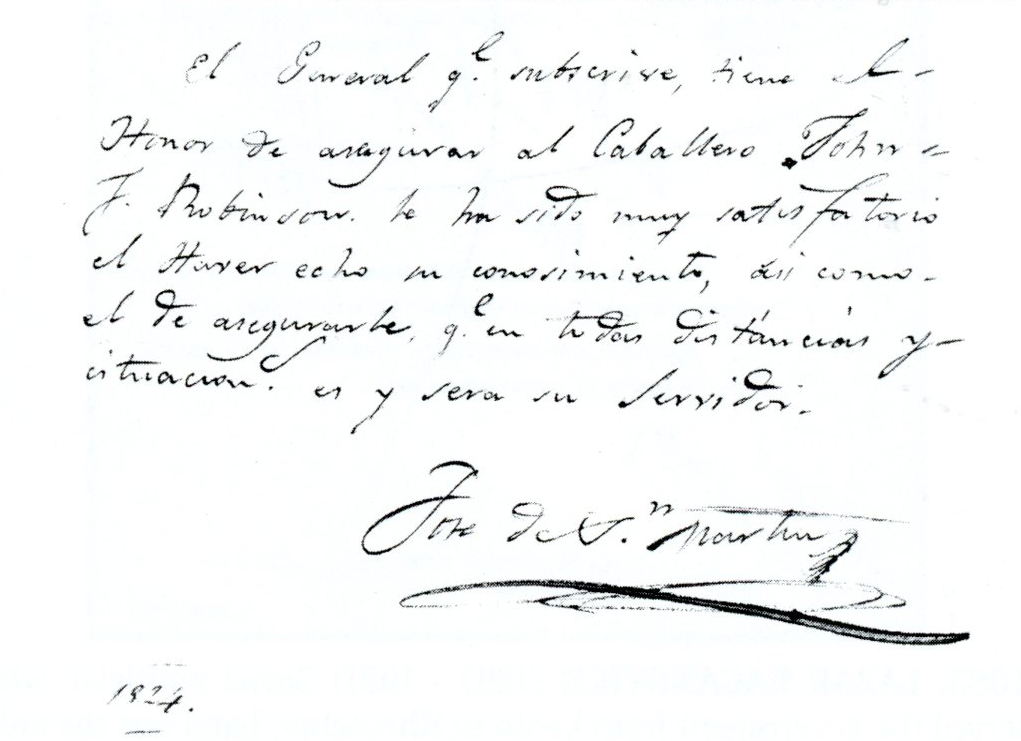 El General q.l subscrive, tiene el-
Honor de asegurar al Caballero John-
F. Robinson. le ha sido muy satisfatorio
el Haver echo su conosimiento, ási como-
el de asegurarle, q.l en todas distáncias y-
cituacion.s es y sera su Servidor.-
Jose de S.n Martin
1824.